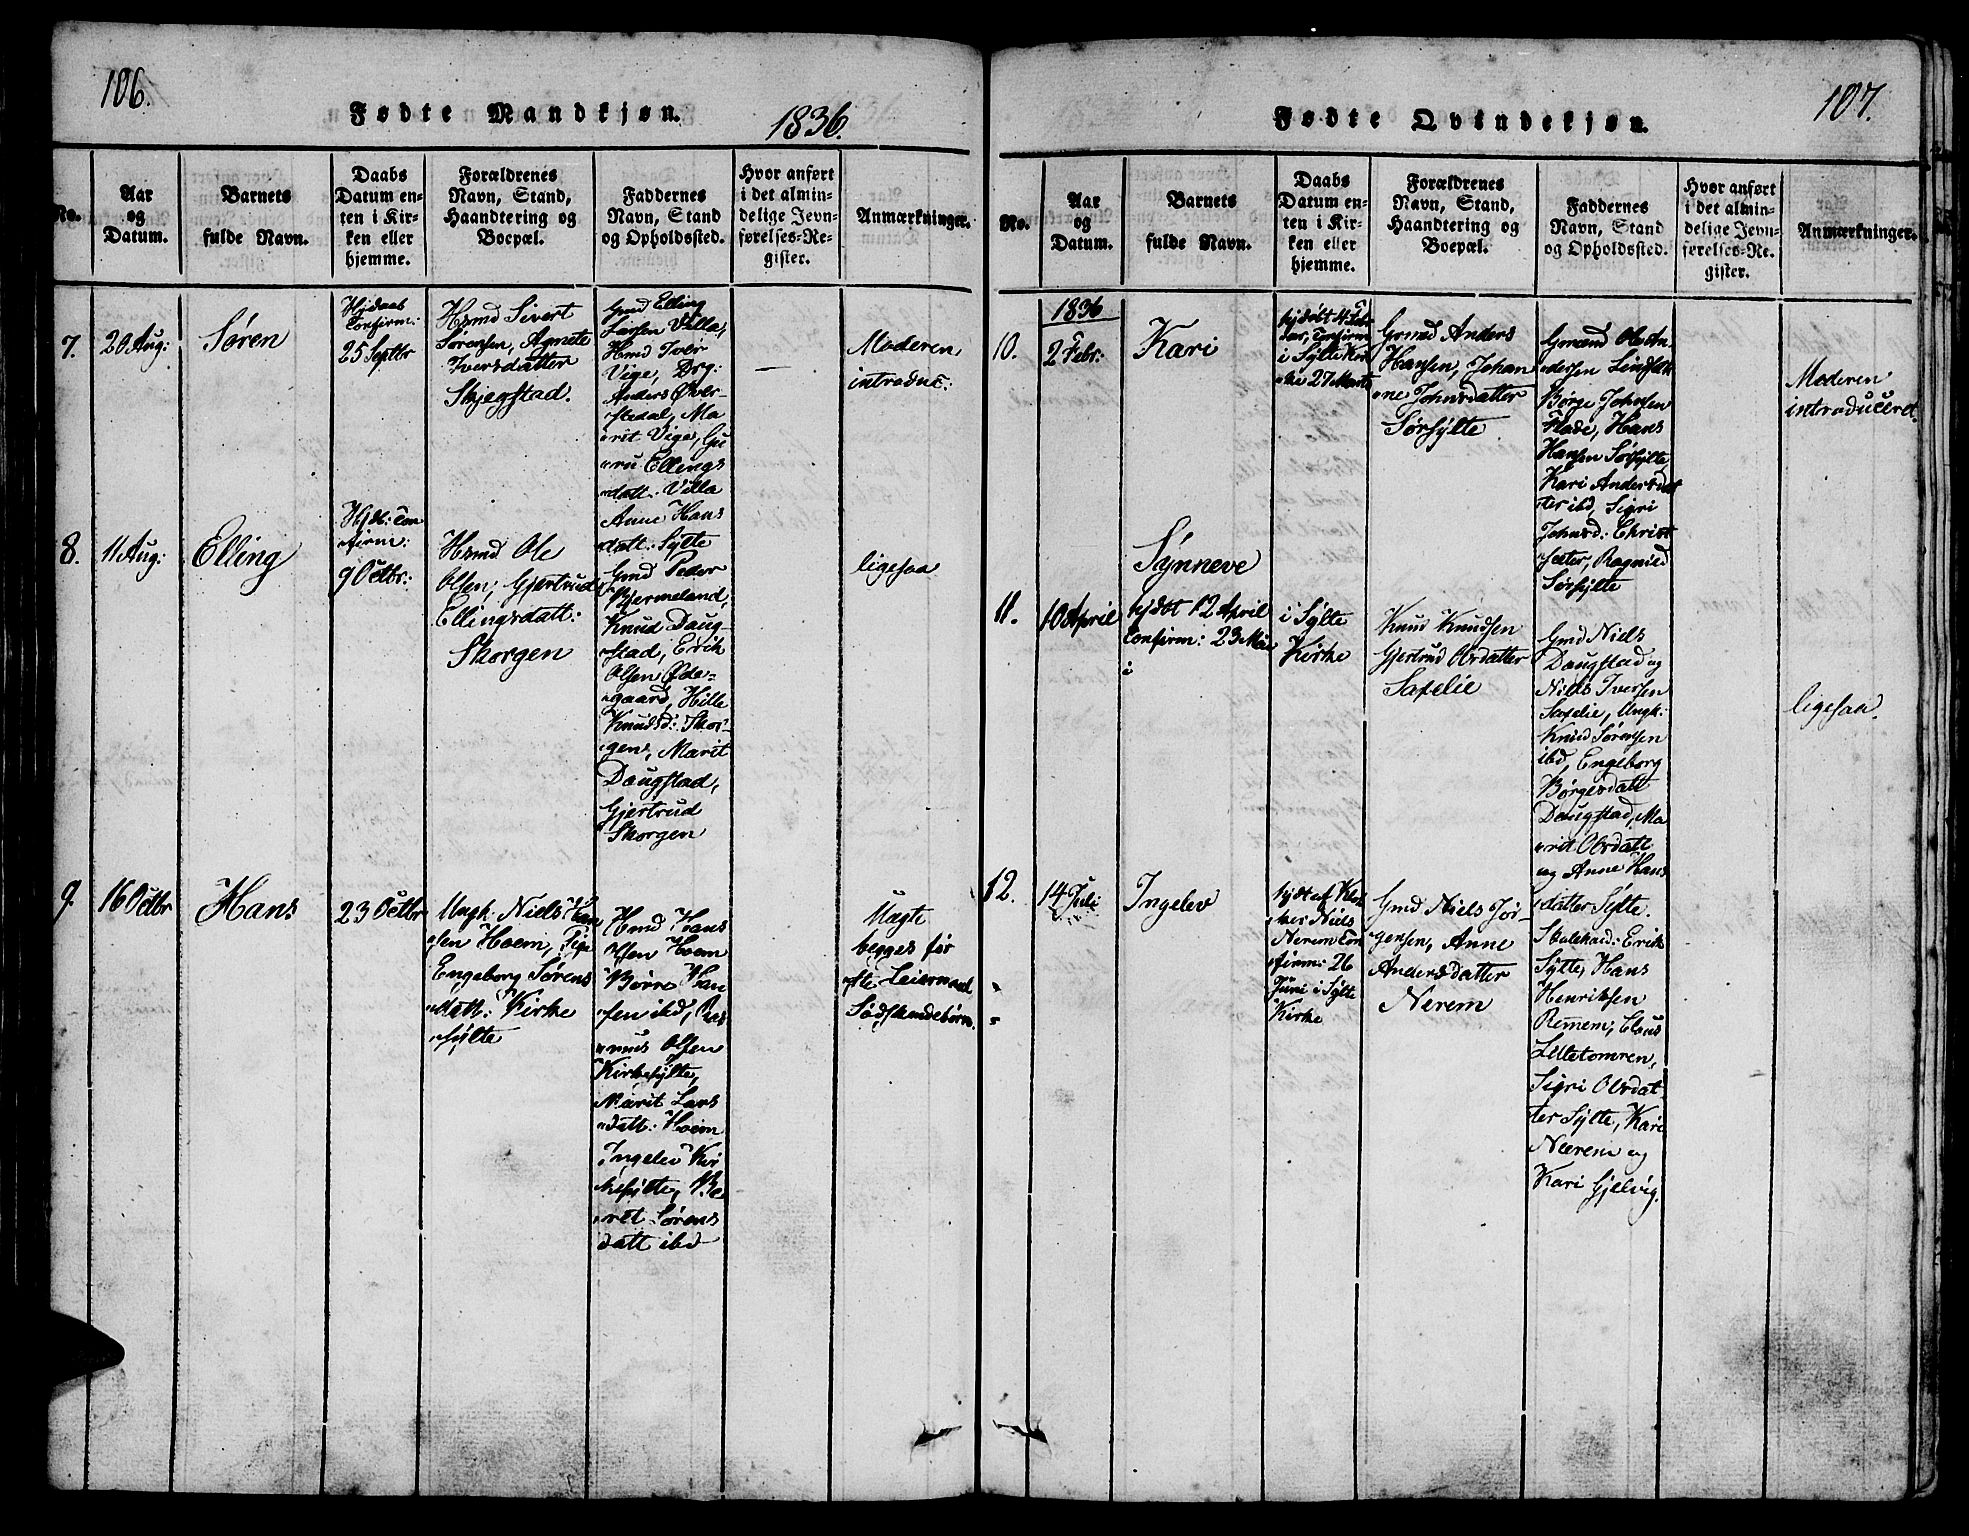 106.
Fødte Mandkjøn.
1836.
No.
Aar
og
Datum.
Barnets
fulde Navn.
Daabs
Datum en-
ten i Kir-
ken eller
hjemme.
Forældrenes
Navn, Stand,
Haandtering og
Boepæl.
Faddernes
Navn, Stand
og Opholdssted.
Hvor anført
i det almin-
delige Jevn-
førelses-Re-
gister.
Anmærkninger.
7.
20 Aug:
Søren
Hjdaab
Confirm:
25 Septbr
Hsmd Sivert
Sørensen, Agnete
Iversdatter
Skjegstad.
Gmd Elling
Larsen Villa,
Hsmd Iver
Vige, Drg:
Anders Øver-
stedal, Ma
rit Vige, Gu
ru Ellings
datt: Villa
Anne Hans
datt: Sylte
—
Moderen
introduc:
8.
11 Aug:
Elling
Hjdb: Con
firm:
9 Octbr:
Hsmd Ole
Olsen, Gjertrud
Ellingsdatt:
Skorgen
Gmd Peder
Bjermeland,
Knud Daug-
stad, Erik
Olsen Øde-
gaard, Hille
Knudsd: Skor-
gen, Marit
Daugstad,
Gjertrud
Skorgen
ligesaa
9.
16 Octbr
Hans
23 Octbr
Ungk. Niels Han
sen Hoem, Pige
Engeborg Sørens
datt: Kirke
sylte
Hmd Hans
Olsen Hoem
Børre Han
sen ibd, Ras
mus Olsen
Kirkesylte,
Marit Lars
datt: Hoem
Ingelev Kir
kesylte, Be
ret Sørens
datt ibd
Uægte
begges før
ste Leiermaal
107.
Fødte Qvindekjøn.
No.
Aar
og
Datum.
Barnets
fulde Navn.
Daabs
Datum en-
ten i Kir-
ken eller
hjemme.
Forældrenes
Navn, Stand,
Haandtering og
Boepæl.
Faddernes
Navn, Stand
og Opholdssted.
Hvor anført
i det almin-
delige Jevn-
førelses-Re-
gister.
Anmærkninger.
1836
10.
2 Febr:
Kari
hjdøbt 4 Feb
ruar, Confirm
i Sylte Kir
ke 27 Marts
Gmd Anders
Hansen, Johan
ne Johnsdatter
Sørsylte
Gmand Ole An
dersen
Børge Johnsen
Flade, Hans
Hansen Sørsylte
Kari Andersdat
ter ibd, Sigri
Johnsd: Christ
Ragnild
Sørsylte
Moderen
introduceret.
11.
10 April
Synneve
hjdøbt 12 April
Confirm: 23 Ma
i
i Sylte
Kirke
Knud Knudsen
Gjertrud Olsdatter
Saxelie
Gmd Niels
Daugstad og
Niels Iversen
Saxelie, Ungk:
Knud Sørensen
ibd, Engeborg
Børgesdatt
Daugstad, Ma
rit Olsdatt
og Anne Hans
datter Sylte.
ligesaa.
12.
14 Juli
Ingelev
hjdt af Klok
ker Niels
Nerem Con
firm: 26
Juni i Sylte
Kirke
Gmd Niels Jør-
gensen, Anne
Andersdatter
Nerem
Erik
Sylte, Hans
Henriksen
Remem, Claus
Lilletomren,
Sigri Olsdat-
ter Sylte, Kari
Nærem og
Kari Gjelvig.